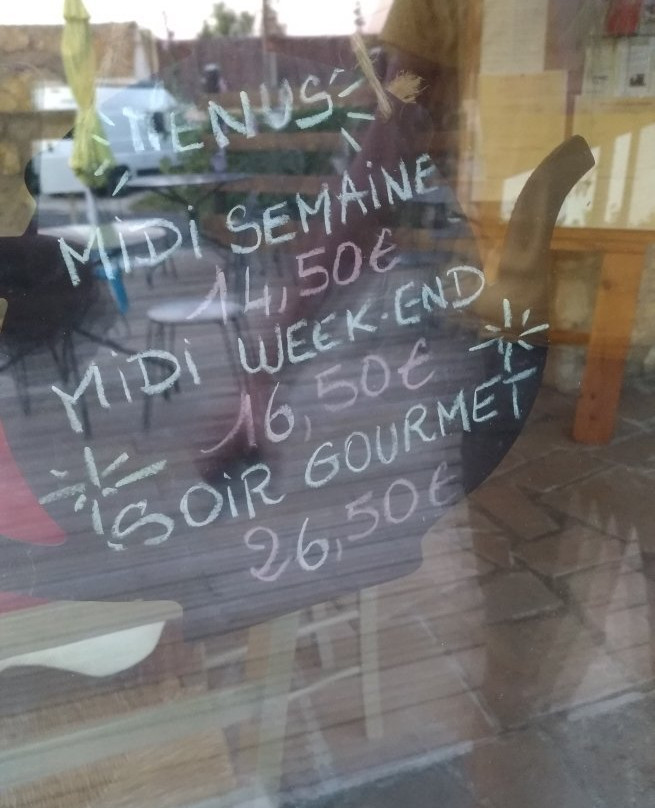 MENUS
MiDi SEMAiNE
14,50€
MiDi WEEK-END
16,50€
SOiR GOURMET
26,50€